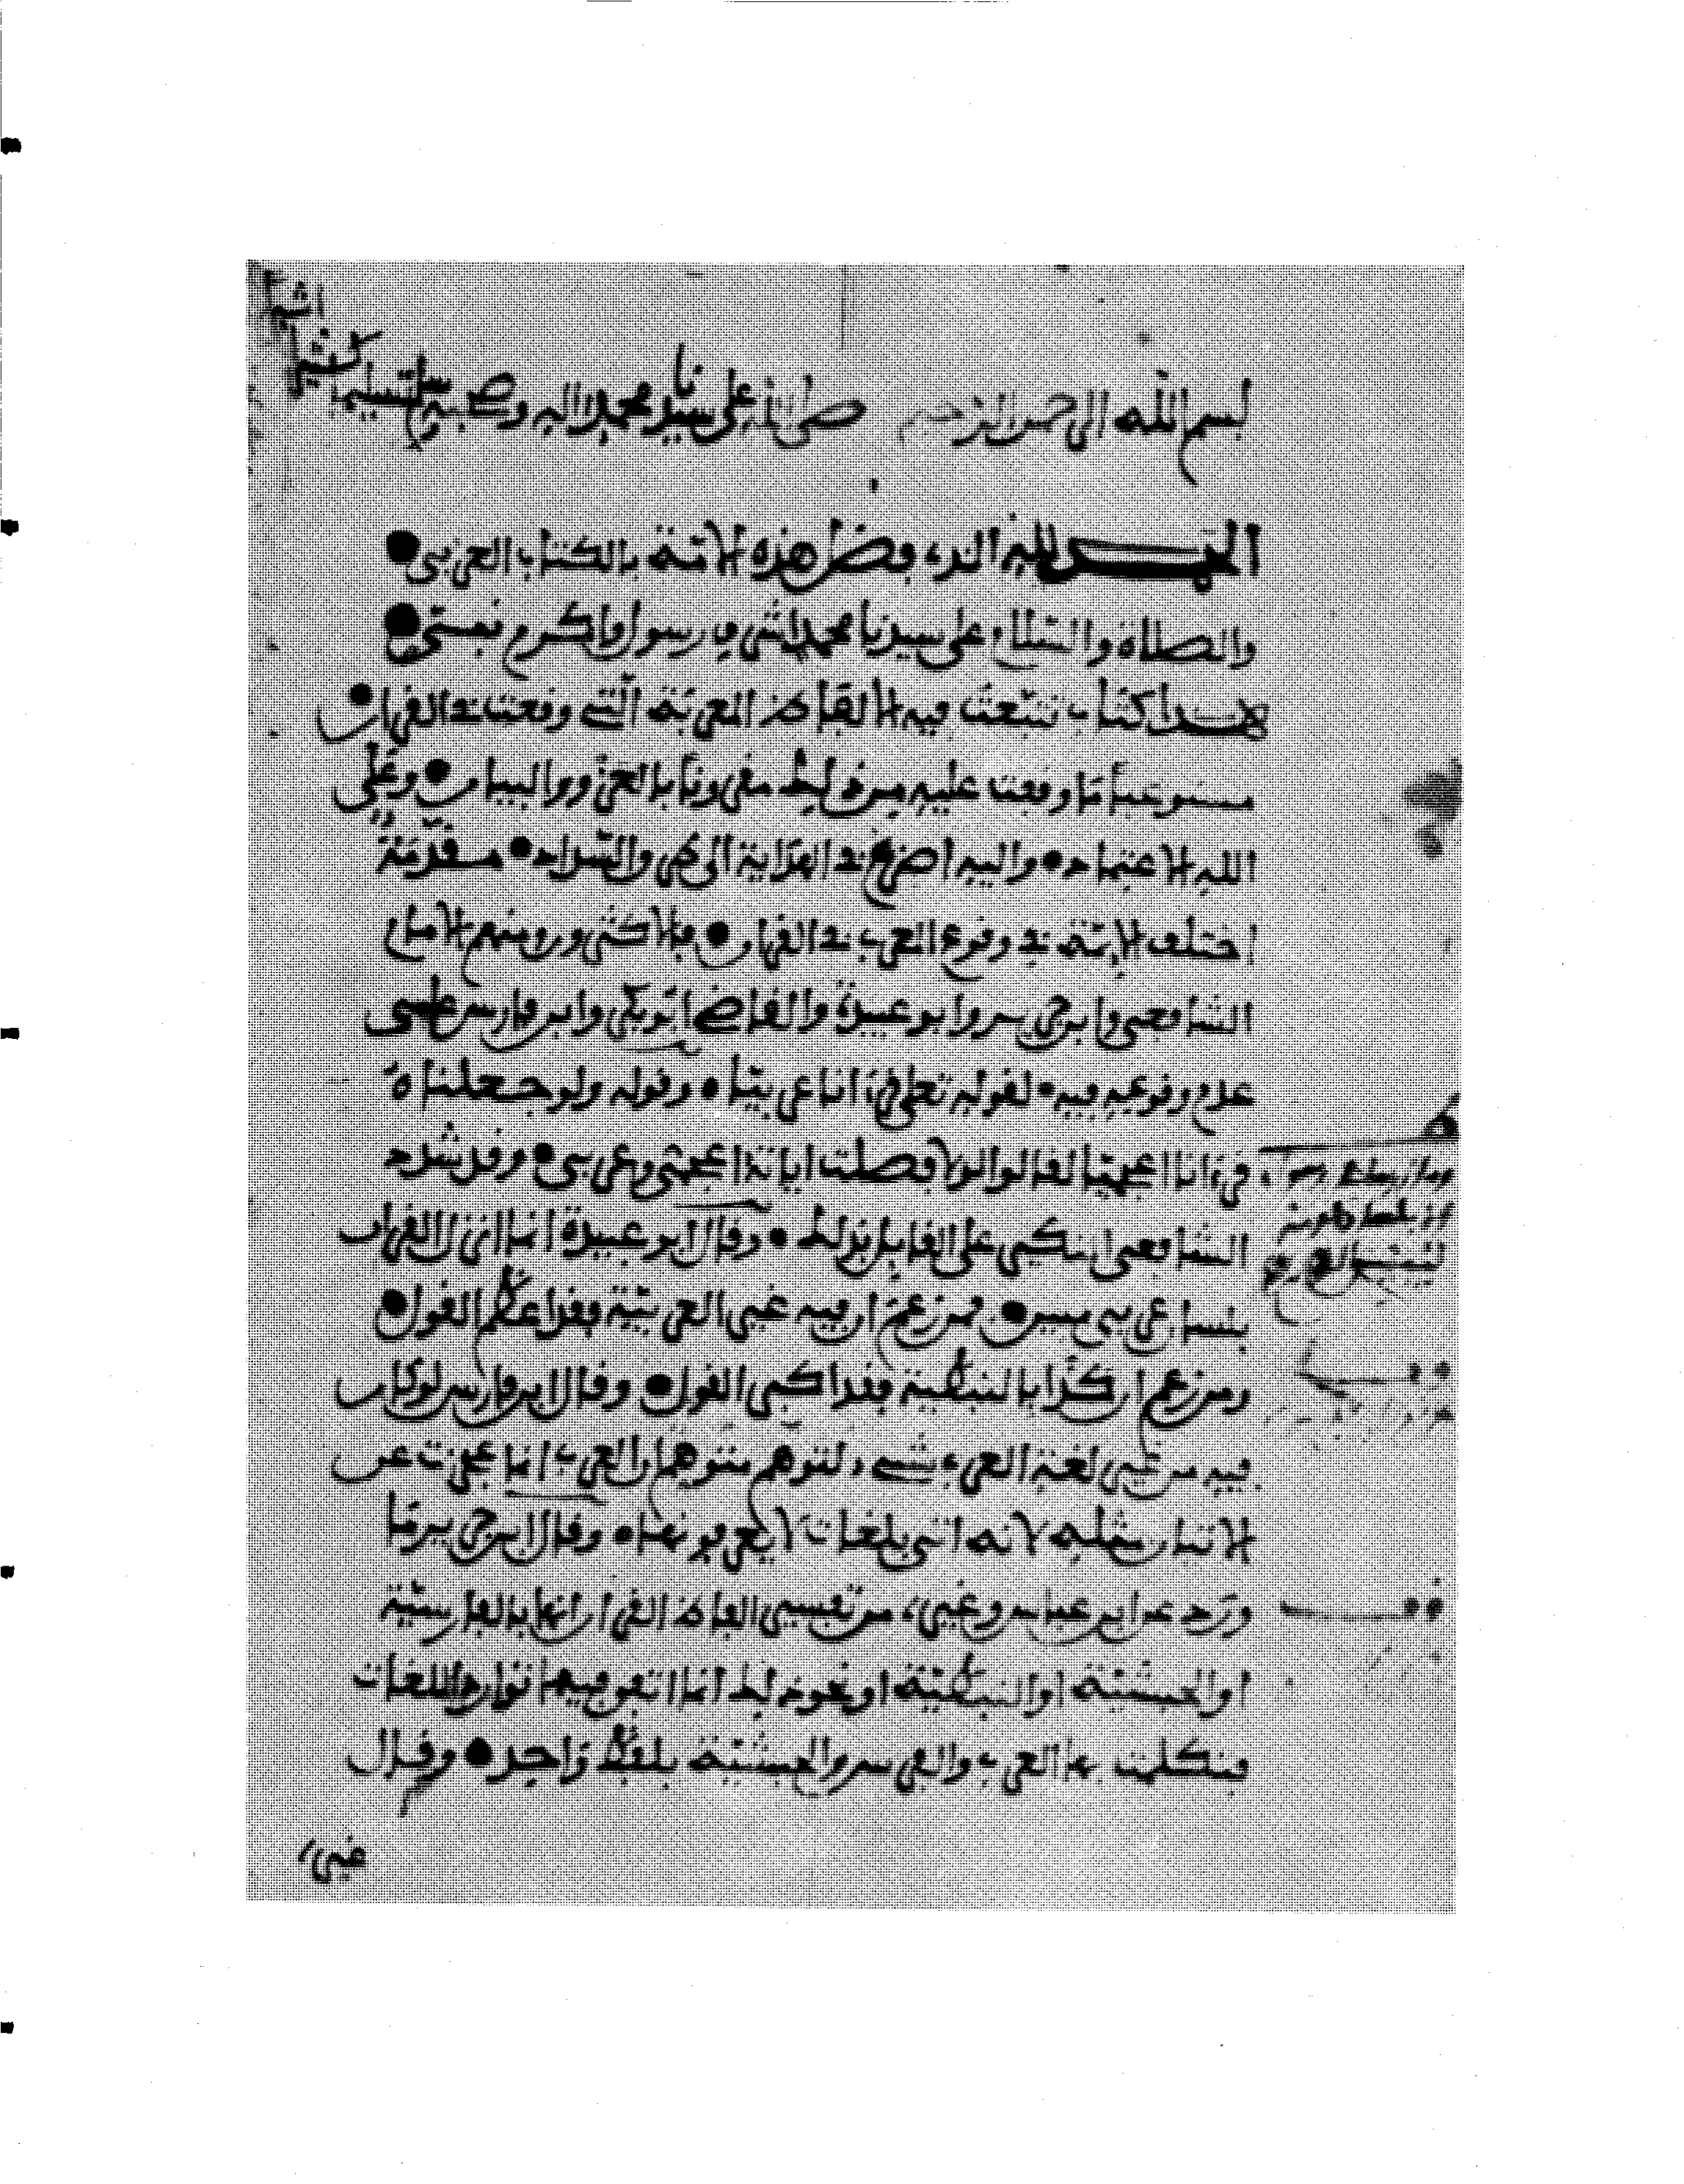 بسم الله الرحمن الرحيم صلى الله على سيدنا محمد واله وصحبه وسلم تسليما
كثيرا
الحمد لله الذي فضل هذه الامة بالكتاب العزيز
والصلاة والسلام على سيدنا محمد اشرف رسول واكرم نبي
هذا كتاب تتبعت فيه الالفاظ المعربة التي وقعت في القرءان
مستوعبا ما وقفت عليه من ذلك مقرونا بالعزو والبيان وعلى
الله الاعتماد واليه اضرع في الهداية الى والسداد مقدمة
اختلف الائمة في وقوع المعرب في القران فالاكثرون ومنهم الامام
الشافعي وابن جرير وابو عبيدة والقاضي ابو بكر وابن فارس على
عدم وقوعه فيه لقوله تعلى قرءانا عربيا وقوله ولو جعلناه
قرءانا اعجميا لقالوا لولا فصلت اياته ءاعجمي وعربي وقد شدد
الشافعي النكير على القايل بذلك وقال ابو عبيدة انما انزل القران
بلسان عربي مبين فمن زعم ان فيه غير العربية فقد اعظم القول
ومن زعم ان كذابا بالنبطية فقد اكبر القول وقال ابن فارس لو كان
فيه من غير لغة العرب شيء لتوهم متوهم ان العرب انما عجزت عن
الاتيان بمثله لانه اتى بلغات لا يعرفونها وقال ابن جرير ما
ورد عن ابن عباس وغيره من تفسير الفاظ القران انها بالفارسية
او الحبشية او النبطية او نحو ذلك انما اتفق فيها توارد اللغات
فتكلمت بها العرب والفرس والحبشة بلفظ واحد وقال
غيره